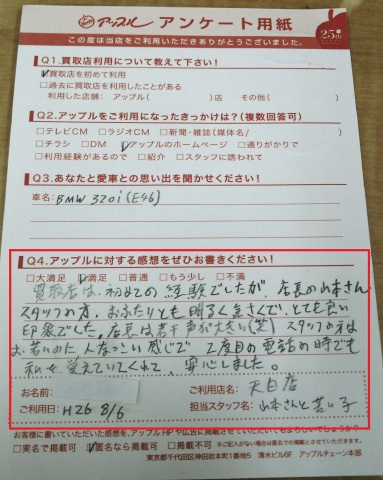 アップル アンケート用紙
25th
この度は当店をご利用いただきありがとうございました。
Q1.買取店利用について教えて下さい!
☑買取店を初めて利用
□過去に買取店を利用したことがある
利用した店舗: アップル( )店 その他( )
Q2.アップルをご利用になったきっかけは?(複数回答可)
□テレビCM □ラジオCM □新聞・雑誌(媒体名/ )
□チラシ □DM ☑アップルのホームページ □通りがかりで
□利用経験があるので □紹介 □スタッフに誘われて
Q3.あなたと愛車との思い出を聞かせください!
車名: BMW 320i (E46)
Q4.アップルに対する感想をぜひお書きください!
□大満足 ☑満足 □普通 □もう少し □不満
買取店は、初めての経験でしたが、店長の山本さん
スタッフの方、おふたりとも明るく気さくで、とても良い
印象でした。店長は若干声が大きい(笑) スタッフの方は
お若いのに人なつっこい感じで 2度目の電話の時でも
私を覚えていてくれて、安心しました。
お名前:
ご利用店名: 天白店
ご利用日: H26 8/6
担当スタッフ名: 山本さんと若い子
お客様に書いていただいた感想を、アップルHPや広告に掲載させていただいてもよろしいでしょうか?
□実名で掲載可 ☑匿名なら掲載可 □掲載不可 ※ご記入がない場合は匿名での掲載とさせていただきます。
東京都千代田区神田岩本町1番地5 清水ビル6F アップルチェーン本部